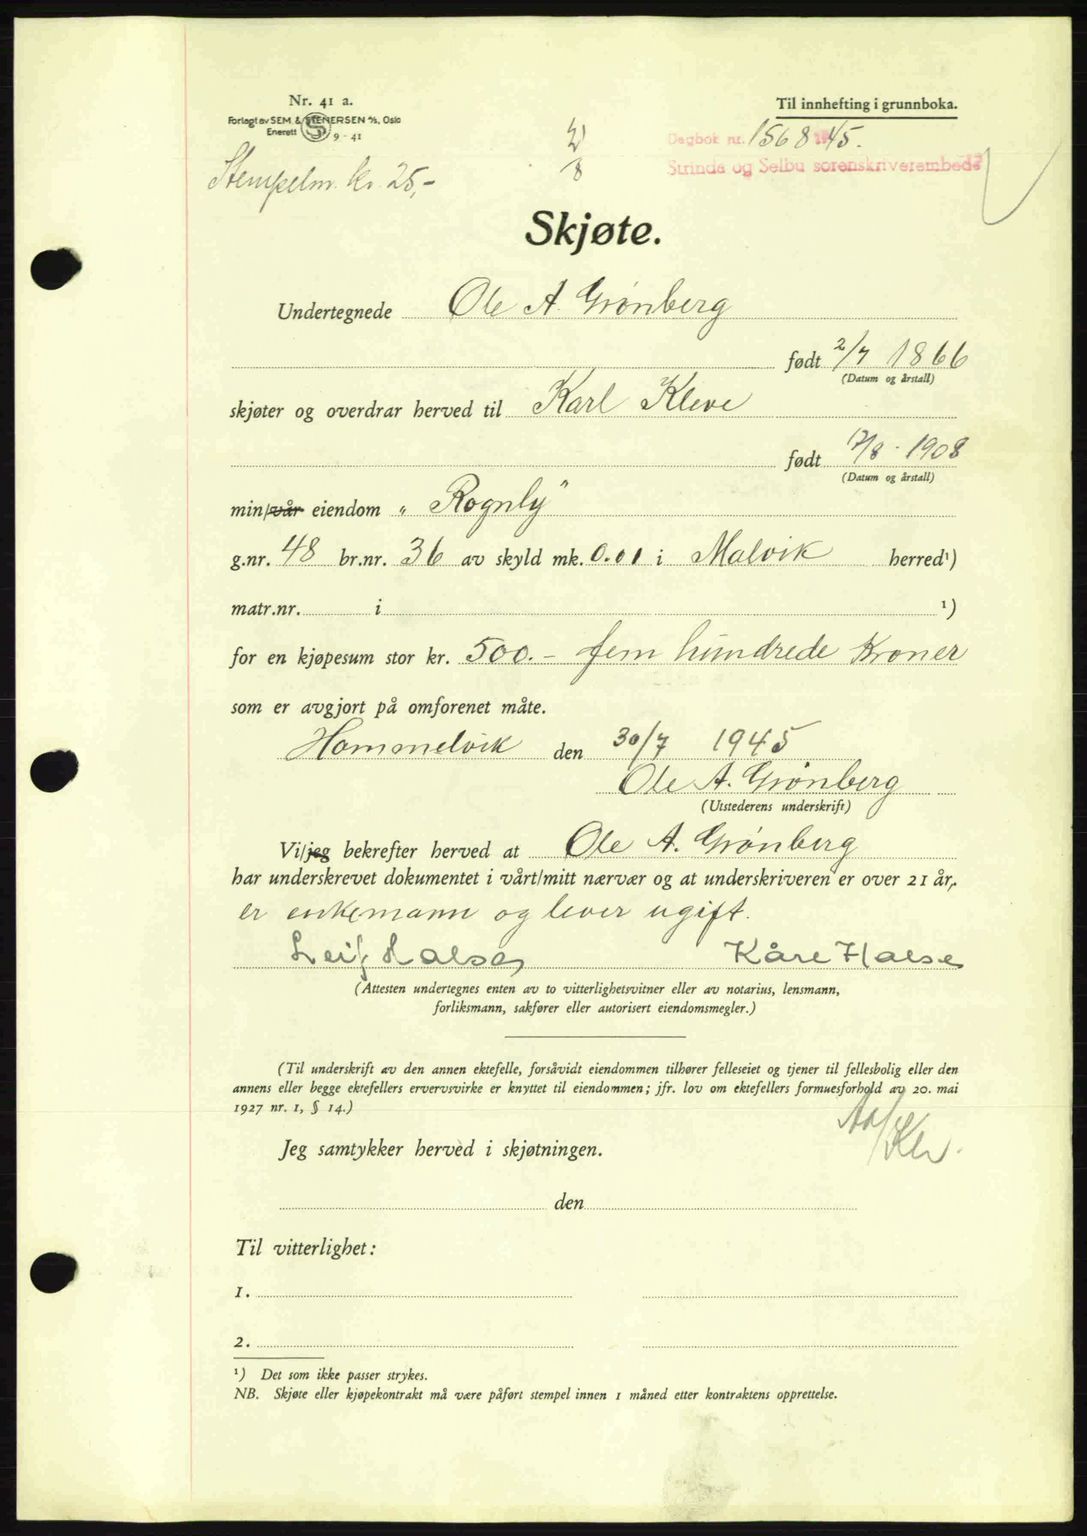 Nr. 41 a.
Forlagt av SEM & STENERSEN A/S, Oslo
Enerett S 9 - 41
Til innhefting i grunnboka.
Dagbok nr. 1568 1945.
Strinda og Selbu sorenskriverembede
Stempelm. kr. 25,-
2/8
Skjøte.
Undertegnede Ole A. Grønberg
født 2/7 1866
(Datum og årstall)
skjøter og overdrar herved til Karl Kleve
født 17/8 - 1908
(Datum og årstall)
min/vår eiendom „ Rognly"
g.nr. 48 br.nr. 36 av skyld mk. 0.01 i Malvik herred¹)
matr.nr. i ¹)
for en kjøpesum stor kr. 500.- fem hundrede Kroner
som er avgjort på omforenet måte.
Hommelvik den 30/7 1945
Ole A. Grønberg
(Utstederens underskrift)
Vi/jeg bekrefter herved at Ole A. Grønberg
har underskrevet dokumentet i vårt/mitt nærvær og at underskriveren er over 21 år,
er enkemann og lever ugift.
Leif Halse Kåre Halse
(Attesten undertegnes enten av to vitterlighetsvitner eller av notarius, lensmann,
forliksmann, sakfører eller autorisert eiendomsmegler.)
(Til underskrift av den annen ektefelle, forsåvidt eiendommen tilhører felleseiet og tjener til fellesbolig eller den
annens eller begge ektefellers ervervsvirke er knyttet til eiendommen; jfr. lov om ektefellers formuesforhold av 20. mai
1927 nr. 1, § 14.)
Jeg samtykker herved i skjøtningen.
den
Til vitterlighet:
1.
2.
¹) Det som ikke passer strykes.
NB. Skjøte eller kjøpekontrakt må være påført stempel innen 1 måned etter kontraktens opprettelse.